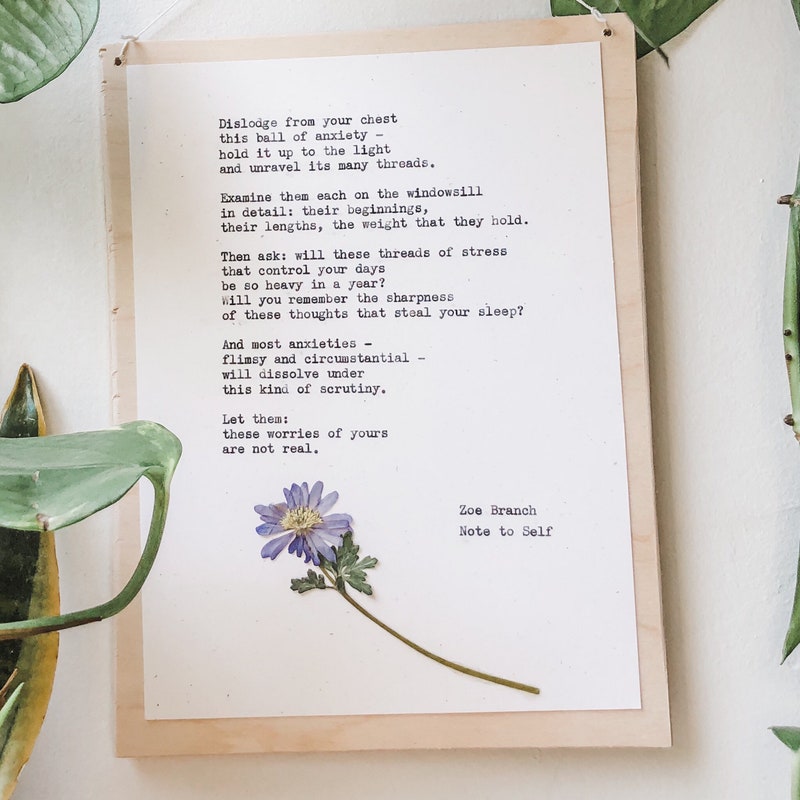 Dislodge from your chest
this ball of anxiety –
hold it up to the light
and unravel its many threads.
Examine them each on the windowsill
in detail: their beginnings,
their lengths, the weight that they hold.
Then ask: will these threads of stress
that control your days
be so heavy in a year?
Will you remember the sharpness
of these thoughts that steal your sleep?
And most anxieties –
flimsy and circumstantial –
will dissolve under
this kind of scrutiny.
Let them:
these worries of yours
are not real.
Zoe Branch
Note to Self